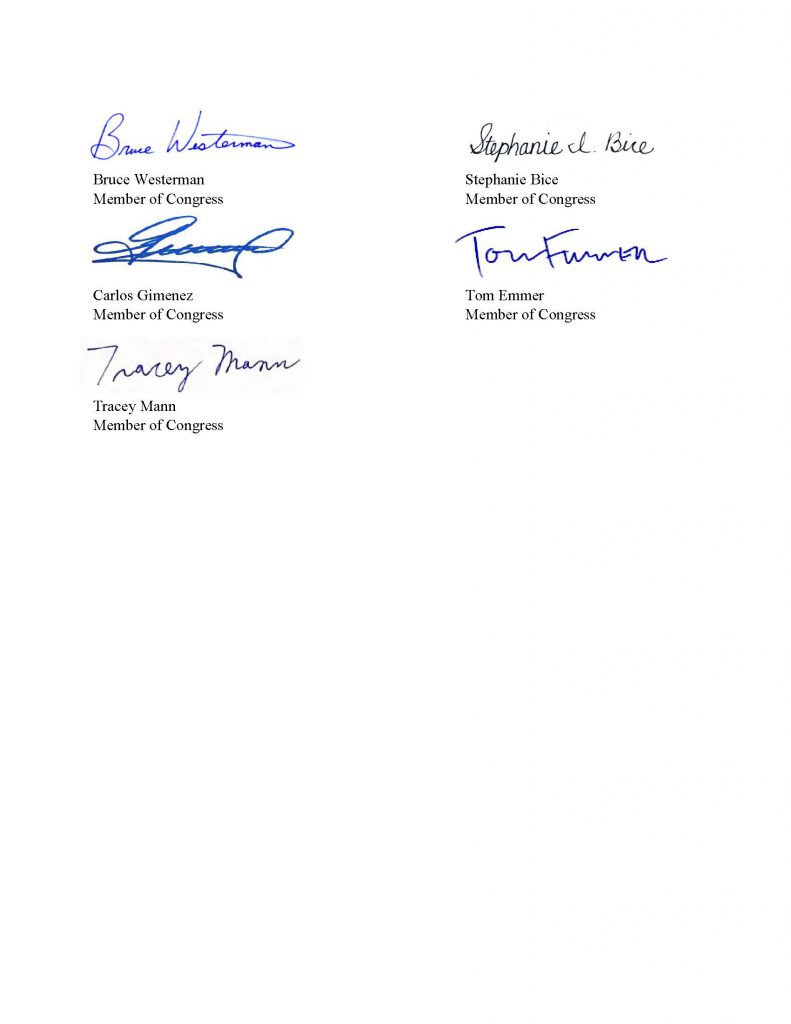 Bruce Westerman
Stephanie I. Bice
Bruce Westerman
Member of Congress
Stephanie Bice
Member of Congress
Tom Emmer
Carlos Gimenez
Member of Congress
Tom Emmer
Member of Congress
Tracey Mann
Tracey Mann
Member of Congress